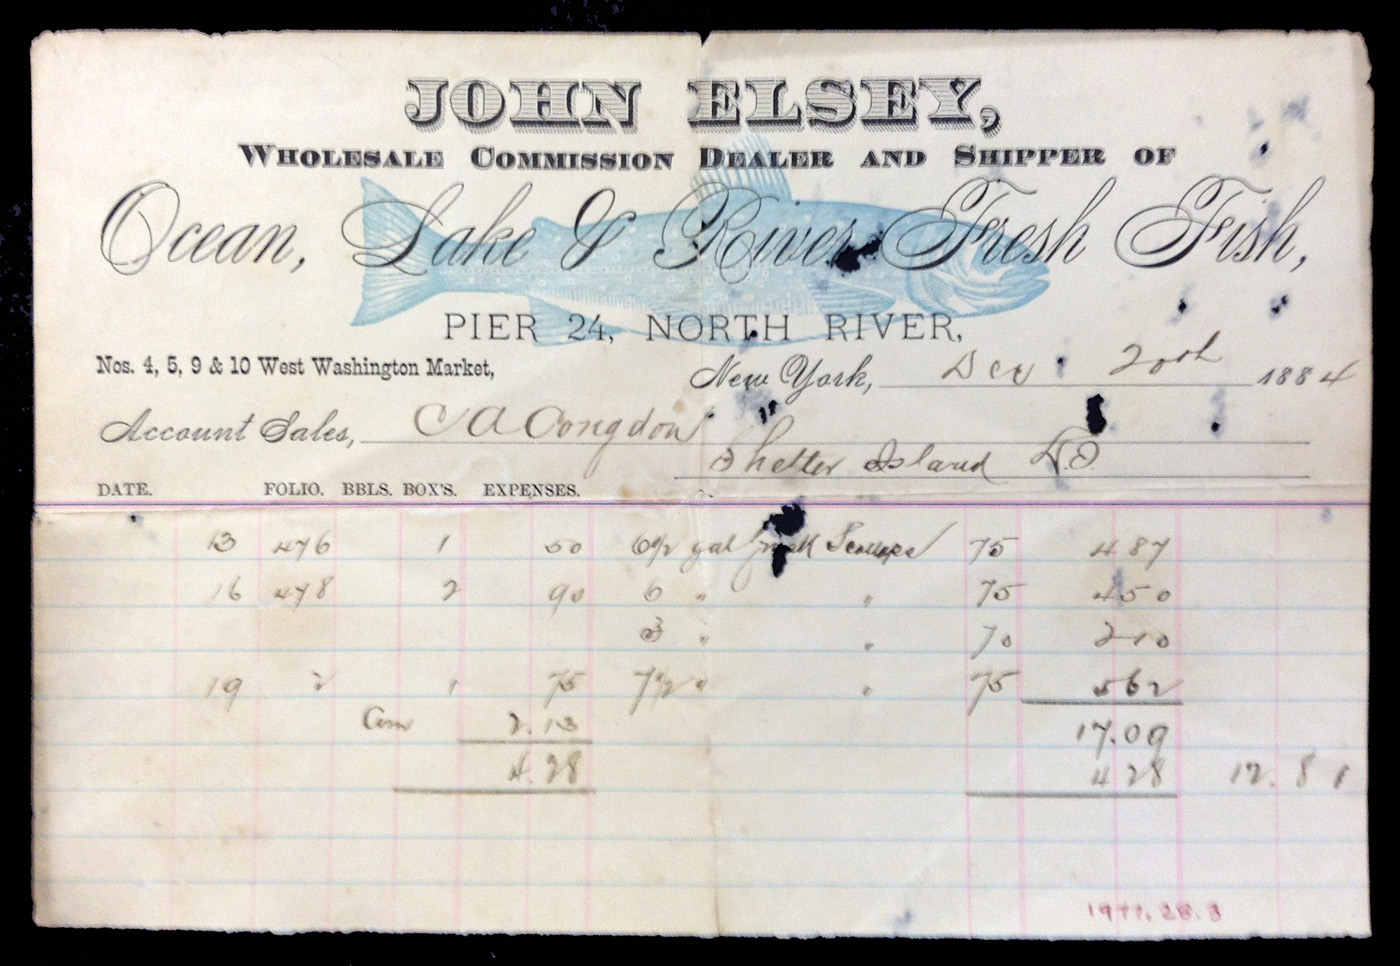 JOHN ELSEY,
WHOLESALE COMMISSION DEALER AND SHIPPER OF
Ocean, Lake & River Fresh Fish,
PIER 24, NORTH RIVER,
Nos. 4, 5, 9 & 10 West Washington Market,
New York, Dec 20th 1884
Account Sales, C A Congdon
Shelter Island
DATE. FOLIO. BBLS. BOX'S. EXPENSES.
13 476 1 50 6 1/2 gal Scallops 75 4 87
16 478 2 90 6 " " 75 4 50
3 " " 70 2 10
19 2 1 75 7 1/2 " " 75 5 62
Com 2.13 17.09
4.28 4 28 12.81
1977.28.3